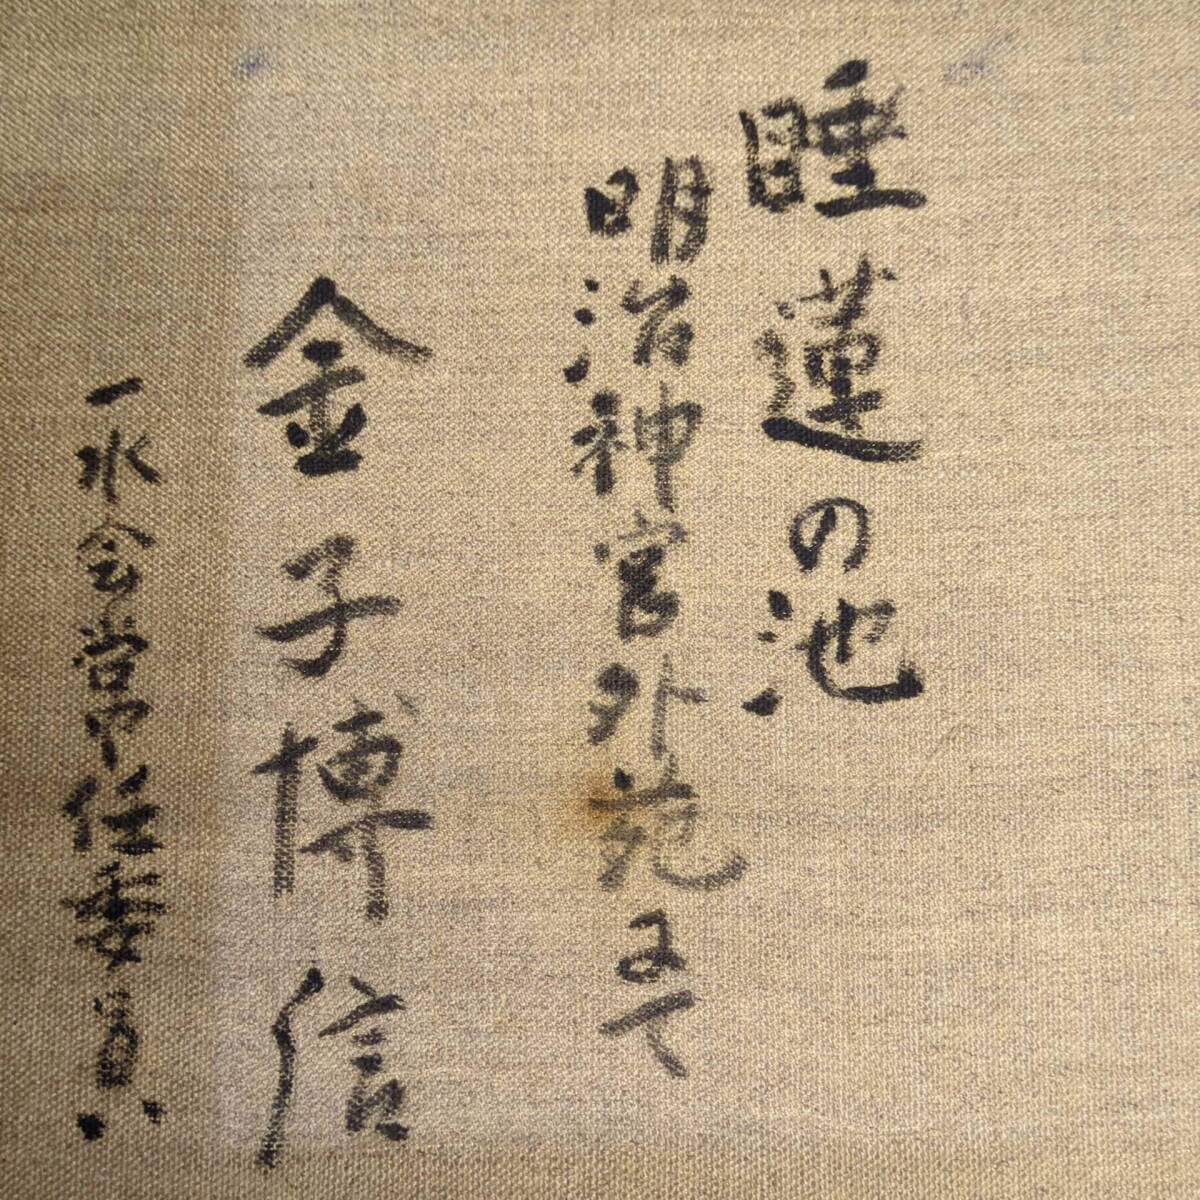 睡蓮の池
明治神宮外苑にて
金子博信
一水会常任委員